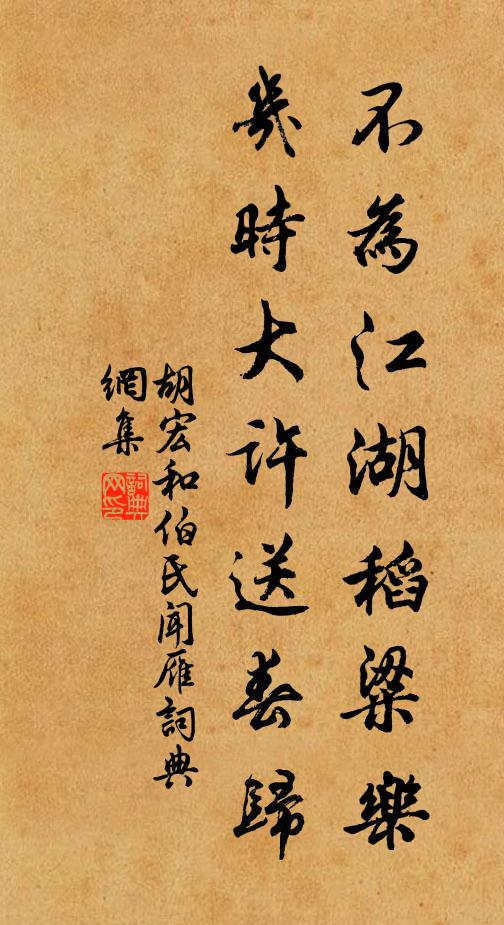 不為江湖稻粱樂
幾時大許送春歸
胡宏和伯氏聞雁詞典
網集
詞典
网印